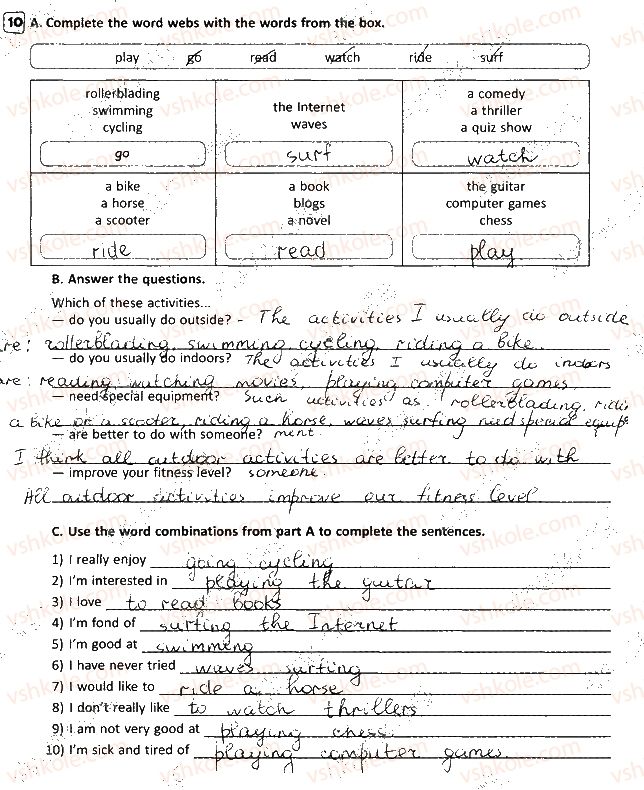 10 A. Complete the word webs with the words from the box.
play go read watch ride surf
rollerblading
swimming
cycling
go
the Internet
waves
surf
a comedy
a thriller
a quiz show
watch
a bike
a horse
a scooter
ride
a book
blogs
a novel
read
the guitar
computer games
chess
play
B. Answer the questions.
Which of these activities...
— do you usually do outside? - The activities I usually do outside
are: rollerblading, swimming cycling, riding a bike.
— do you usually do indoors? The activities I usually do indoors
are: reading, watching movies, playing computer games
— need special equipment? Such activities as rollerblading, riding
a bike or a scooter, riding a horse, waves surfing need special equip
— are better to do with someone? ment.
I think all outdoor activities are better to do with
— improve your fitness level? someone.
All outdoor activities improve our fitness level
C. Use the word combinations from part A to complete the sentences.
1) I really enjoy going cycling
2) I'm interested in playing the guitar
3) I love to read books
4) I'm fond of surfing the Internet
5) I'm good at swimming
6) I have never tried waves surfing
7) I would like to ride a horse
8) I don't really like to watch thrillers
9) I am not very good at playing chess.
10) I'm sick and tired of playing computer games.
vshkole.com